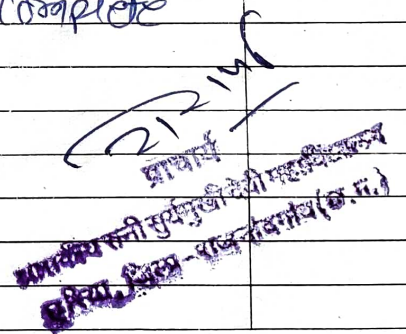 Complete
प्राचार्य
शासकीय रानी सुर्यमुखी देवी महाविद्यालय
छुरिया, जिला - राजनांदगांव (छ.ग.)